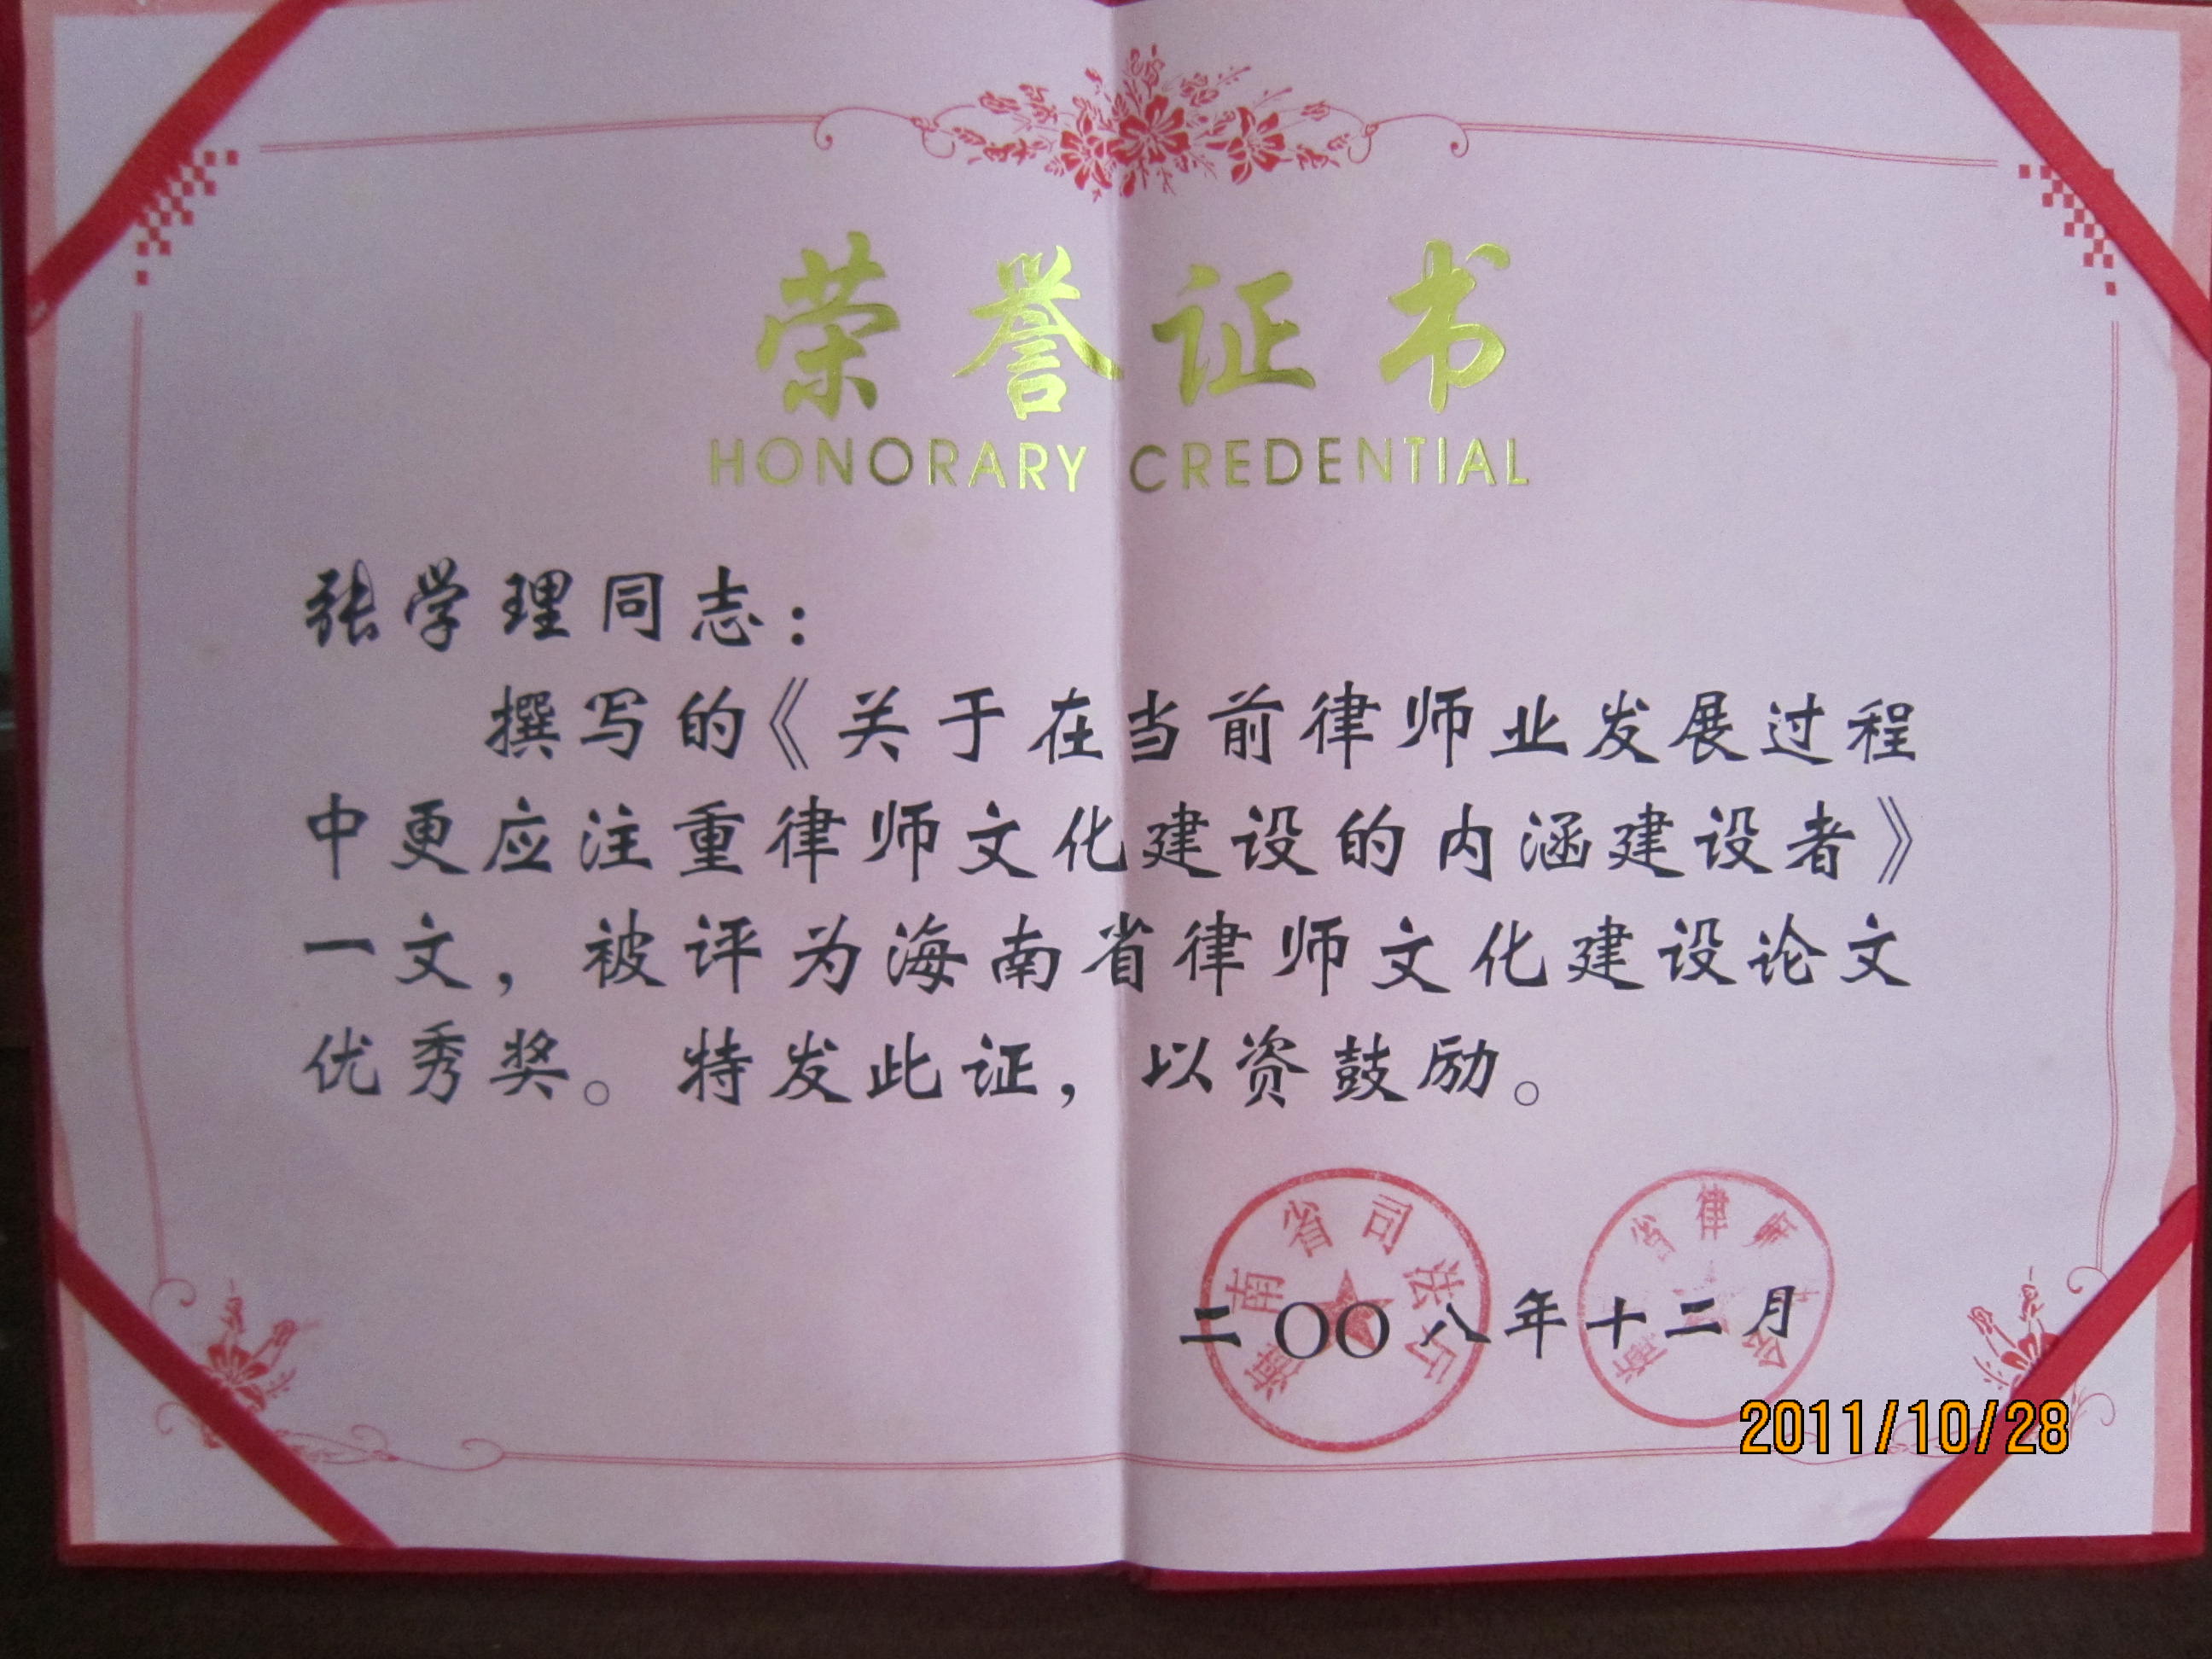 荣誉证书
HONORARY CREDENTIAL
张学理同志：
撰写的《关于在当前律师业发展过程
中更应注重律师文化建设的内涵建设者》
一文，被评为海南省律师文化建设论文
优秀奖。特发此证，以资鼓励。
海南省司法厅
省律师
会
二〇〇八年十二月
2011/10/28